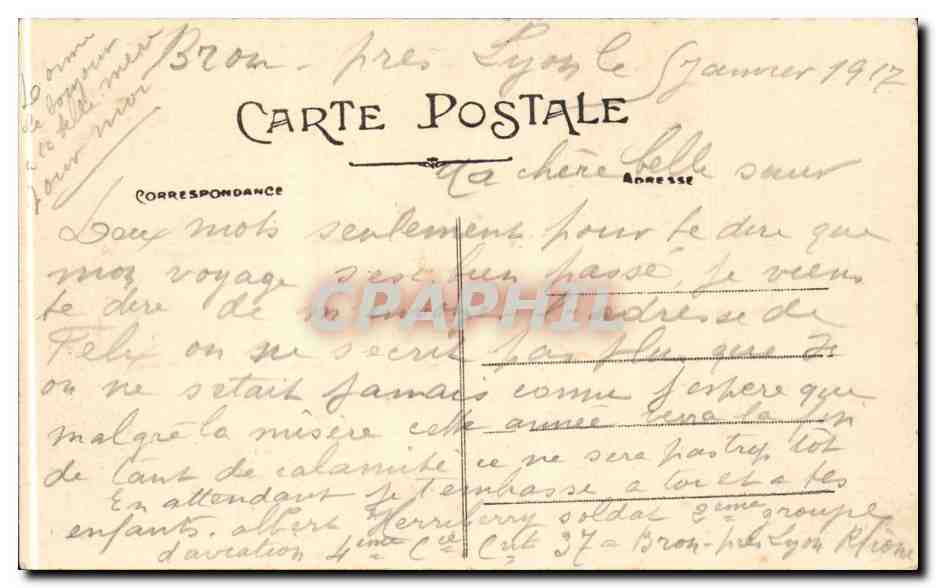 Bron - près Lyon le 5 Janvier 1917
CARTE POSTALE
Donne
le bonjour
à ta belle mère
pour moi
Ma chère belle sœur
CORRESPONDANCE
ADRESSE
Deux mots seulement pour te dire que
mon voyage s'est bien passé, je viens
te dire de m'envoyer l'adresse de
Felix on ne s'ecrit pas plus que si
on ne s'etait jamais connu j'espere que
malgré la misère cette année verra la fin
de tant de calamité ce ne sera pas trop tôt
En attendant je t'embrasse a toi et a tes
enfants. albert soldat 2ème groupe
d'aviation 4ème Cie 37 a Bron - près Lyon Rhône
CPAPHIL